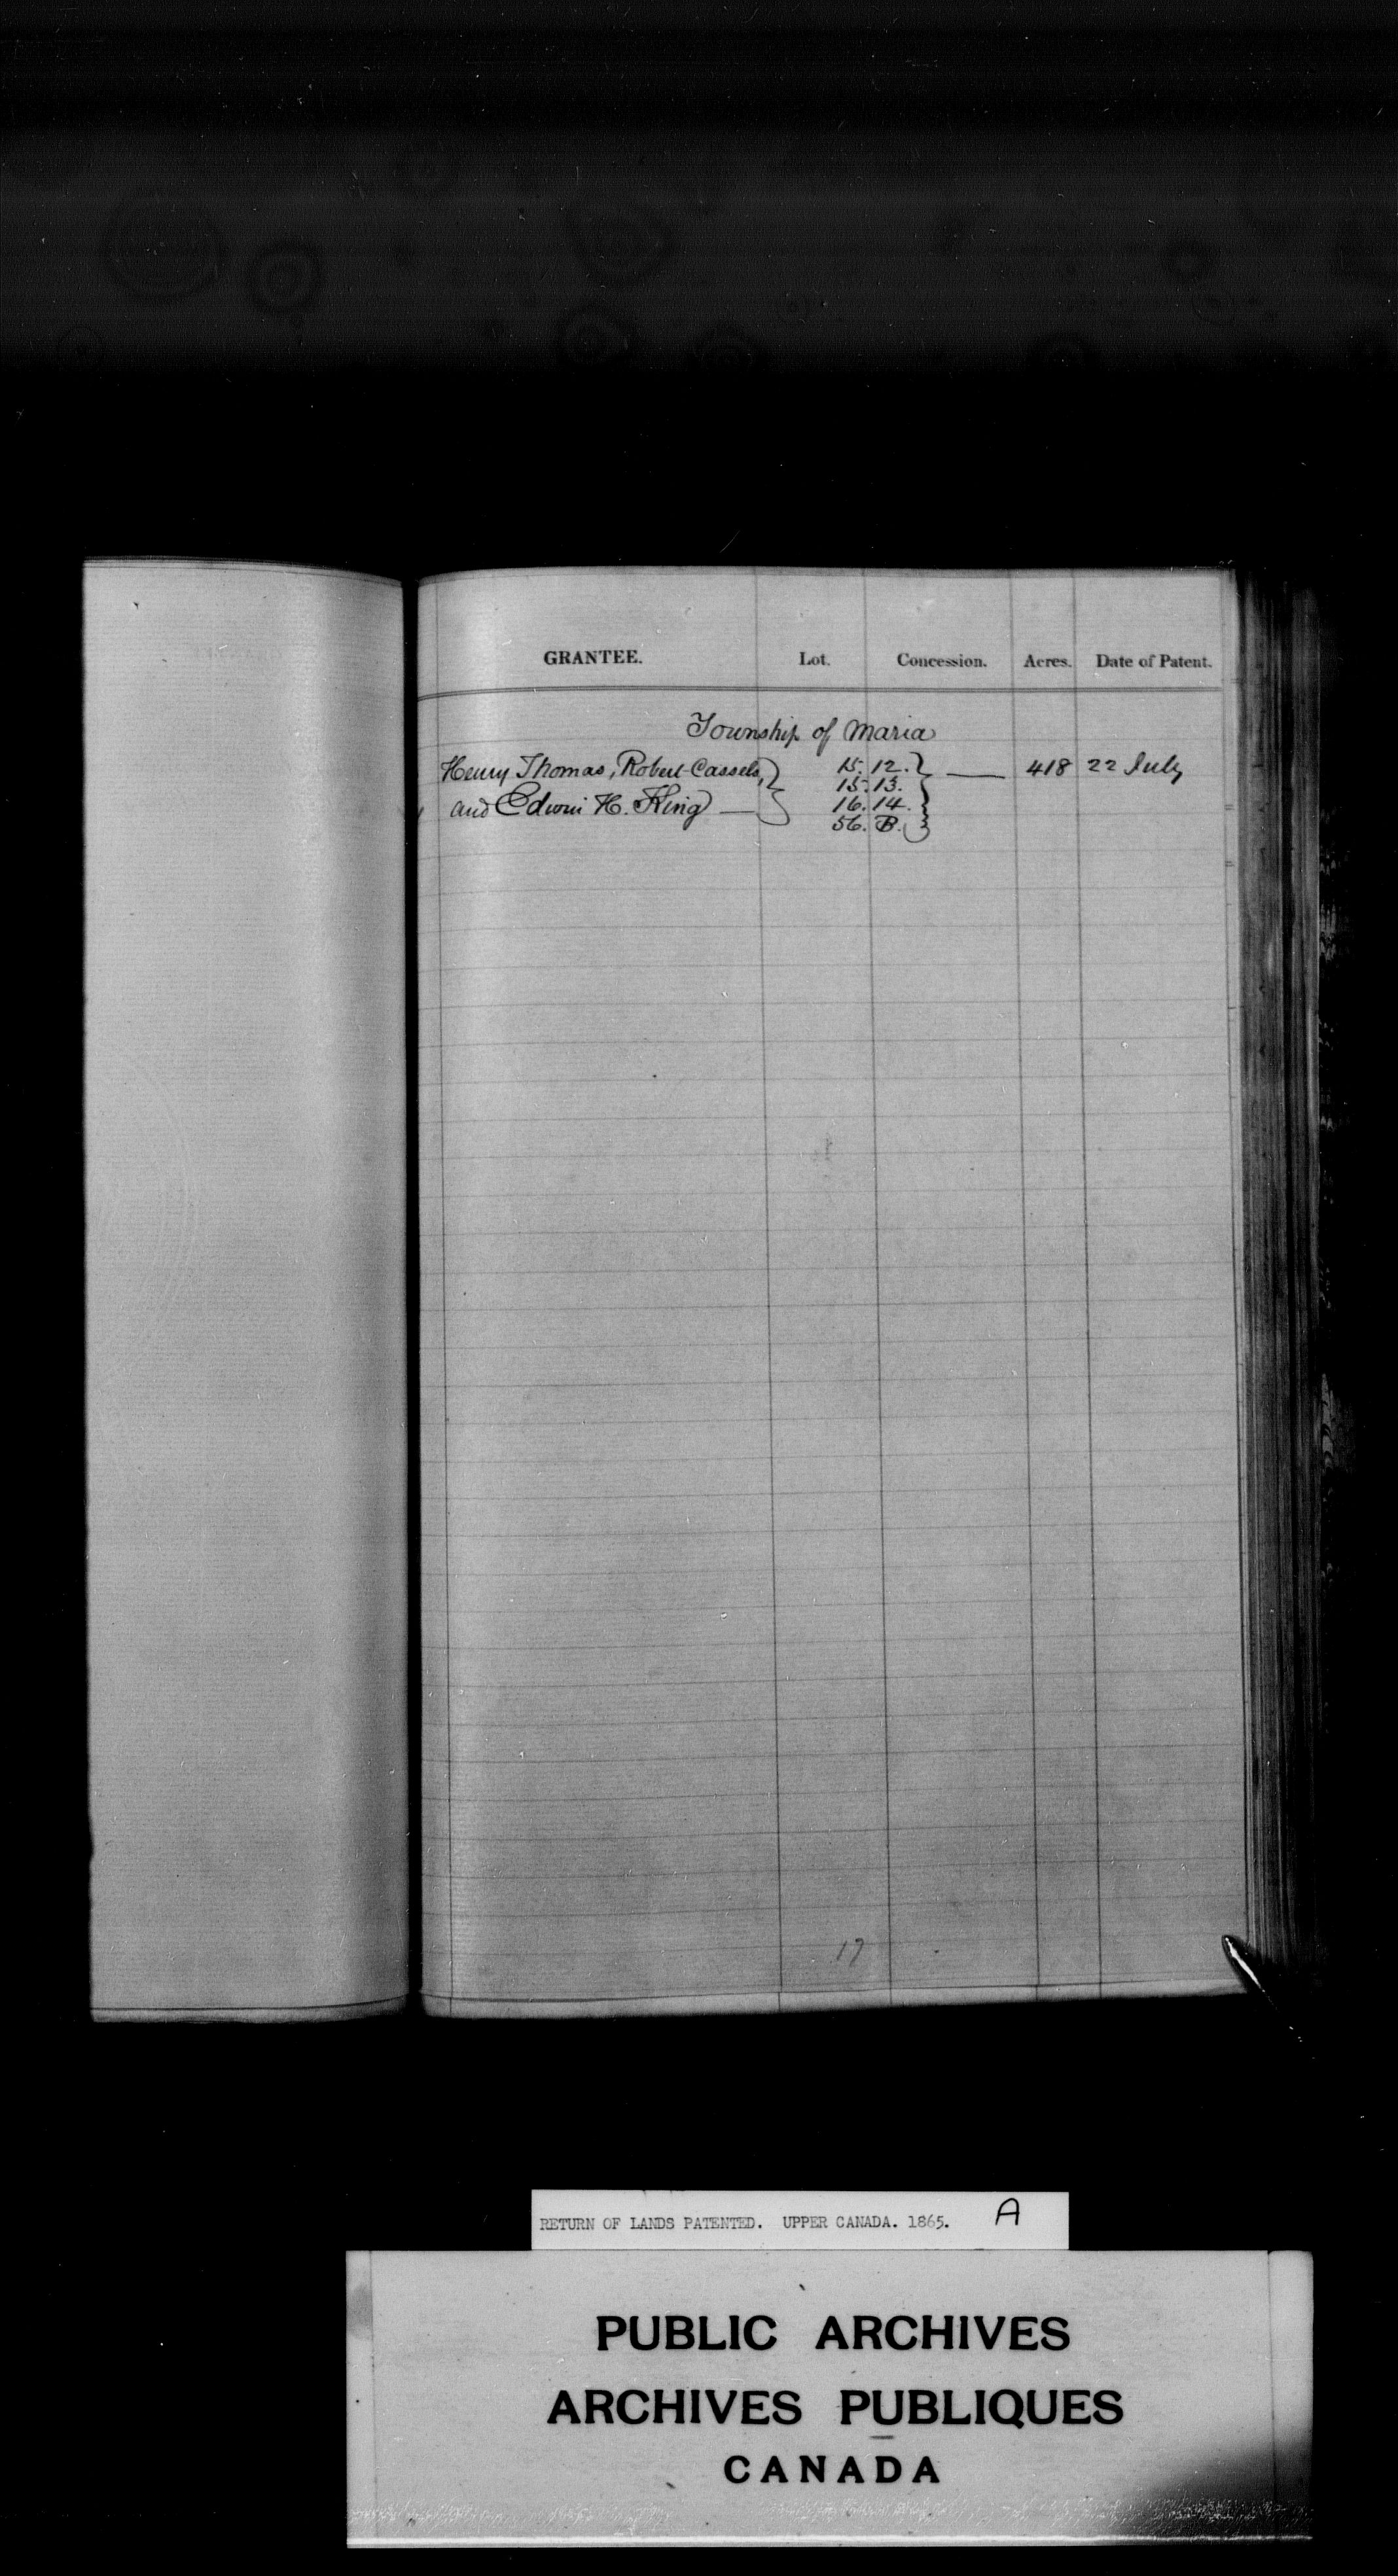 GRANTEE. Lot. Concession. Acres. Date of Patent.
Township of Maria
Henry Thomas, Robert Cassels, 15. 12. 418 22 July
15. 13.
and Edwin H. King 16. 14.
56. B.
17
RETURN OF LANDS PATENTED. UPPER CANADA. 1865. A
PUBLIC ARCHIVES
ARCHIVES PUBLIQUES
CANADA